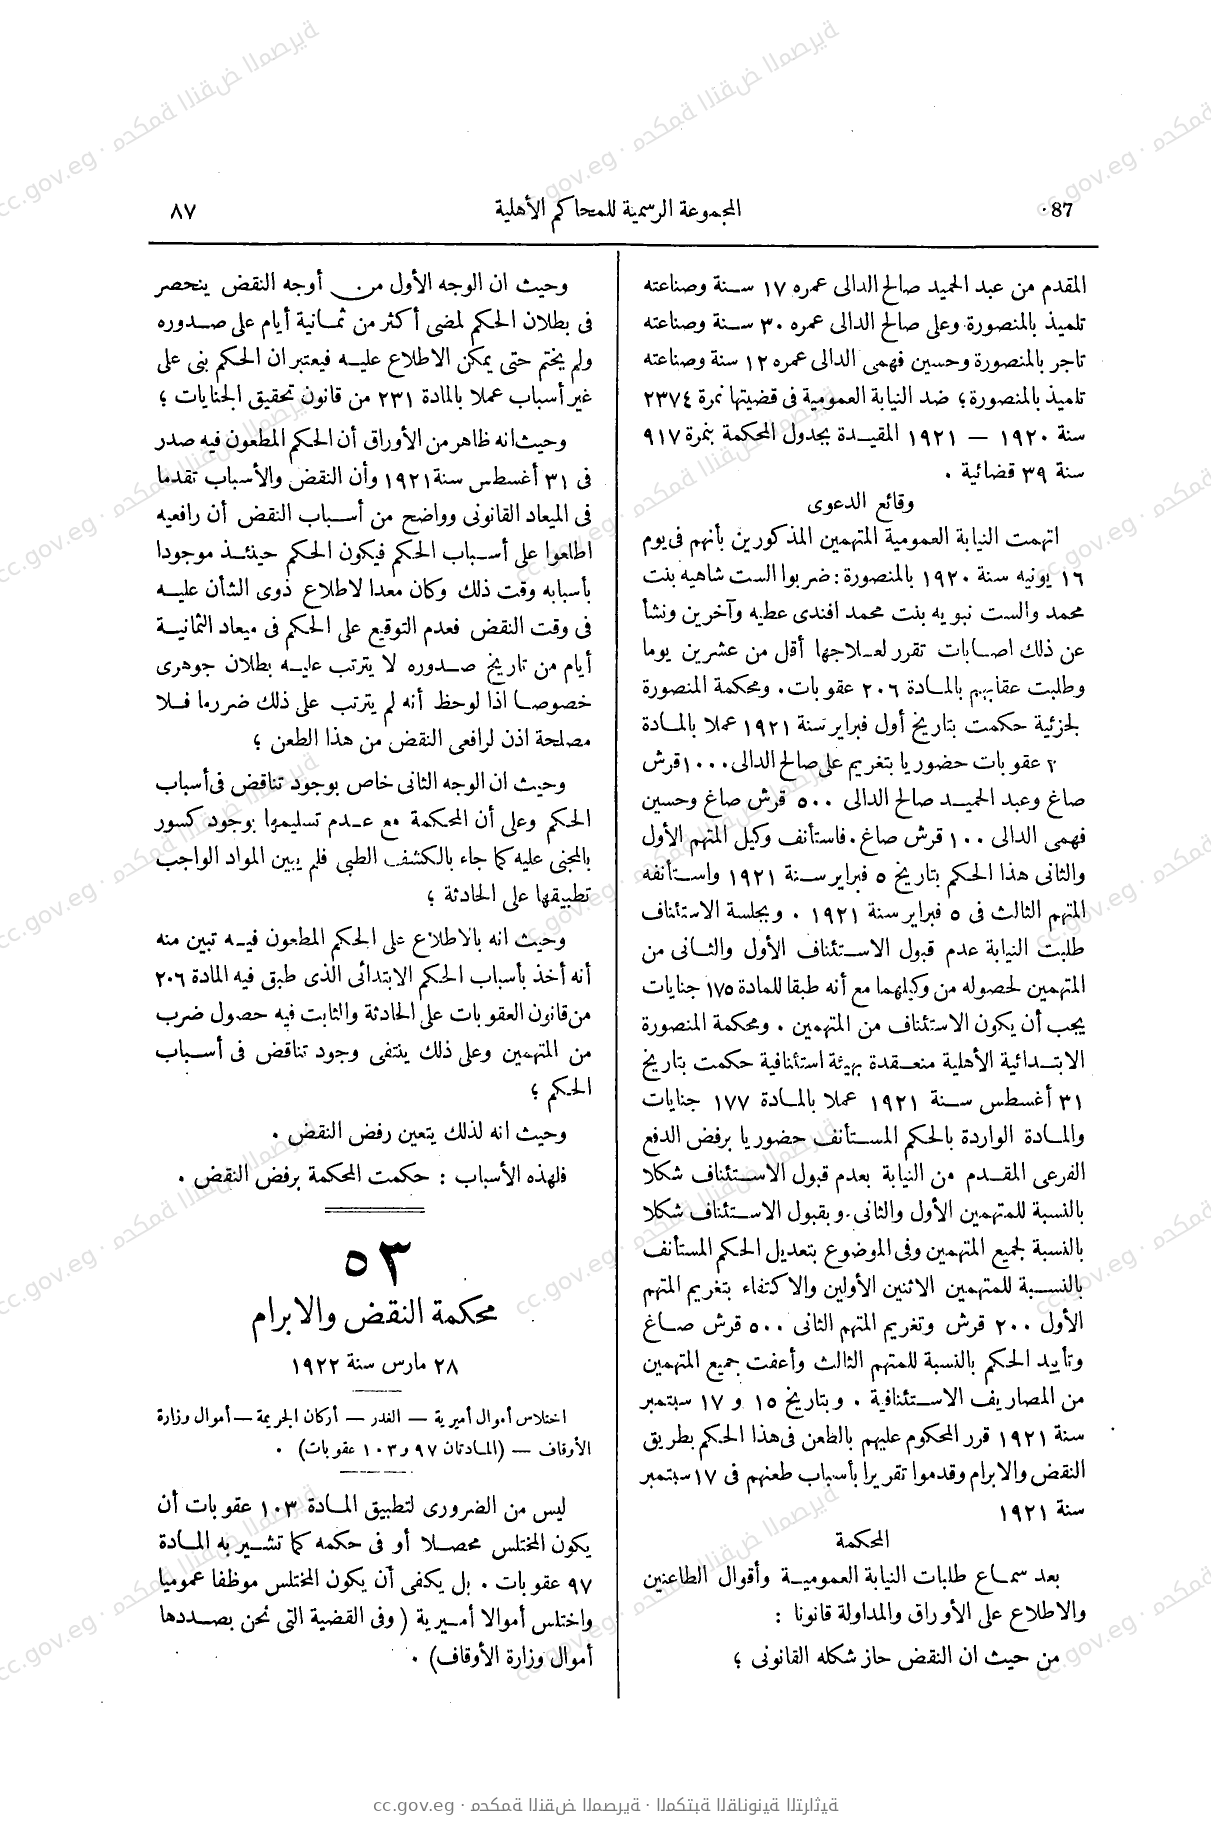 87
المجموعة الرسمية للمحاكم الأهلية
٨٧
المقدم من عبد الحميد صالح الدالى عمره ١٧ سنة وصناعته
تلميذ بالمنصورة وعلى صالح الدالى عمره ٣٠ سنة وصناعته
تاجر بالمنصورة وحسين فهمى الدالى عمره ١٢ سنة وصناعته
تلميذ بالمنصورة؛ ضد النيابة العمومية فى قضيتها نمرة ٢٣٧٤
سنة ١٩٢٠ — ١٩٢١ المقيدة بجدول المحكمة بنمرة ٩١٧
سنة ٣٩ قضائية .
وقائع الدعوى
اتهمت النيابة العمومية المتهمين المذكورين بأنهم فى يوم
١٦ يونيه سنة ١٩٢٠ بالمنصورة: ضربوا الست شاهيه بنت
محمد والست نبويه بنت محمد افندى عطيه وآخرين ونشأ
عن ذلك اصابات تقرر لعلاجها أقل من عشرين يوما
وطلبت عقابهم بالمادة ٢٠٦ عقوبات. ومحكمة المنصورة
لجزئية حكمت بتاريخ أول فبراير سنة ١٩٢١ عملا بالمادة
٢ عقوبات حضوريا بتغريم على صالح الدالى ١٠٠٠ قرش
صاغ وعبد الحميد صالح الدالى ٥٠٠ قرش صاغ وحسين
فهمى الدالى ١٠٠ قرش صاغ. فاستأنف وكيل المتهم الأول
والثانى هذا الحكم بتاريخ ٥ فبراير سنة ١٩٢١ واستأنفه
المتهم الثالث فى ٥ فبراير سنة ١٩٢١ . وبجلسة الاستئناف
طلبت النيابة عدم قبول الاستئناف الأول والثانى من
المتهمين لحصوله من وكيلهما مع أنه طبقا للمادة ١٧٥ جنايات
يجب أن يكون الاستئناف من المتهمين . ومحكمة المنصورة
الابتدائية الأهلية منعقدة بهيئة استئنافية حكمت بتاريخ
٣١ أغسطس سنة ١٩٢١ عملا بالمادة ١٧٧ جنايات
والمادة الواردة بالحكم المستأنف حضوريا برفض الدفع
الفرعى المقدم من النيابة بعدم قبول الاستئناف شكلا
بالنسبة للمتهمين الأول والثانى. وبقبول الاستئناف شكلا
بالنسبة لجميع المتهمين وفى الموضوع بتعديل الحكم المستأنف
بالنسبة للمتهمين الاثنين الأولين والاكتفاء بتغريم المتهم
الأول ٢٠٠ قرش وتغريم المتهم الثانى ٥٠٠ قرش صاغ
وتأييد الحكم بالنسبة للمتهم الثالث وأعفت جميع المتهمين
من المصاريف الاستئنافية . وبتاريخ ١٥ و ١٧ سبتمبر
سنة ١٩٢١ قرر المحكوم عليهم بالطعن فى هذا الحكم بطريق
النقض والابرام وقدموا تقريرا بأسباب طعنهم فى ١٧ سبتمبر
سنة ١٩٢١
المحكمة
بعد سماع طلبات النيابة العمومية وأقوال الطاعنين
والاطلاع على الأوراق والمداولة قانونا :
من حيث ان النقض حاز شكله القانونى ؛
وحيث ان الوجه الأول من أوجه النقض ينحصر
فى بطلان الحكم لمضى أكثر من ثمانية أيام على صدوره
ولم يختم حتى يمكن الاطلاع عليه فيعتبر ان الحكم بنى على
غير أسباب عملا بالمادة ٢٣١ من قانون تحقيق الجنايات ؛
وحيث انه ظاهر من الأوراق أن الحكم المطعون فيه صدر
فى ٣١ أغسطس سنة ١٩٢١ وأن النقض والأسباب تقدما
فى الميعاد القانونى وواضح من أسباب النقض أن رافعيه
اطلعوا على أسباب الحكم فيكون الحكم حينئذ موجودا
بأسبابه وقت ذلك وكان معدا لاطلاع ذوى الشأن عليه
فى وقت النقض فعدم التوقيع على الحكم فى ميعاد الثمانية
أيام من تاريخ صدوره لا يترتب عليه بطلان جوهرى
خصوصا اذا لوحظ أنه لم يترتب على ذلك ضرر ما فلا
مصلحة اذن لرافعى النقض من هذا الطعن ؛
وحيث ان الوجه الثانى خاص بوجود تناقض فى أسباب
الحكم وعلى أن المحكمة مع عدم تسليمها بوجود كسور
بالمجنى عليه كما جاء بالكشف الطبى فلم يبين المواد الواجب
تطبيقها على الحادثة ؛
وحيث انه بالاطلاع على الحكم المطعون فيه تبين منه
أنه أخذ بأسباب الحكم الابتدائى الذى طبق فيه المادة ٢٠٦
من قانون العقوبات على الحادثة والثابت فيه حصول ضرب
من المتهمين وعلى ذلك ينتفى وجود تناقض فى أسباب
الحكم ؛
وحيث انه لذلك يتعين رفض النقض .
فلهذه الأسباب : حكمت المحكمة برفض النقض .
٥٣
محكمة النقض والابرام
٢٨ مارس سنة ١٩٢٢
اختلاس أموال أميرية — الغدر — أركان الجريمة — أموال وزارة
الأوقاف — (المادتان ٩٧ و ١٠٣ عقوبات) .
ليس من الضرورى لتطبيق المادة ١٠٣ عقوبات أن
يكون المختلس محصلا أو فى حكمه كما تشير به المادة
٩٧ عقوبات . بل يكفى أن يكون المختلس موظفا عموميا
واختلس أموالا أميرية ( وفى القضية التى نحن بصددها
أموال وزارة الأوقاف) .
cc.gov.eg · محكمة النقض المصرية · المكتبة القانونية التراثية